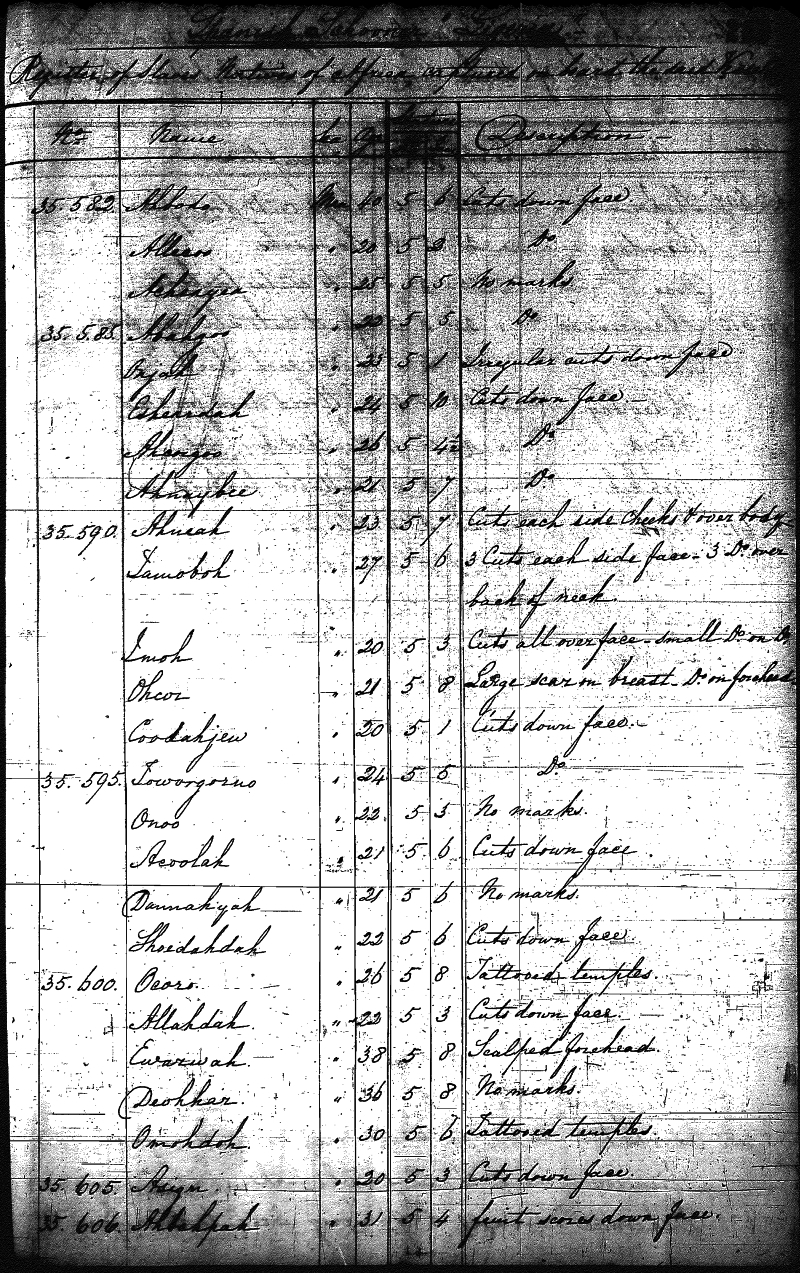 Spanish Schooner
Register of Slaves Natives of Africa captured on board the said Vessel
No. Name Sex Age Description
35.582. Men 40 5 6 Cuts down face
" 20 5 Do
" 25 5 5 No marks
35.585. " 20 5 5 Do
" 25 5 1 Irregular cuts down face
" 24 5 10 Cuts down face
" 26 5 4½ Do
" 21 5 7 Do
35.590. " 23 5 7 Cuts each side Cheeks & over body
" 27 5 6 3 Cuts each side face - 3 Do over
back of neck.
Imoh " 20 5 3 Cuts all over face - small Do on
Ohcor " 21 5 8 Large scar on breast - Do on forehead
Coodahjew " 20 5 1 Cuts down face.
35.595. " 24 5 5 Do
Onoo " 22 5 5 No marks.
Acoolah " 21 5 6 Cuts down face.
Dannahyah " 21 5 6 No marks.
Shoedahdah " 22 5 6 Cuts down face.
35.600. Ocoro. " 26 5 8 Tattooed temples
Allahdah. " 23 5 3 Cuts down face.
Ewarwah " 38 5 8 Scalped forehead.
Deohkar. " 36 5 8 No marks.
Omohdoh. " 30 5 6 Tattooed temples.
35.605. " 20 5 3 Cuts down face
35.606. " 31 5 4 faint scores down face.